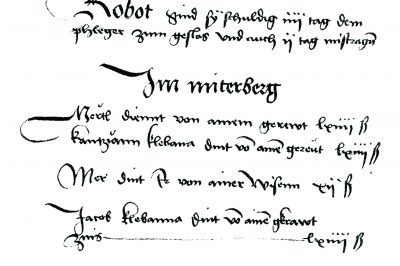 Robot sind sy schuldig iiii tag dem
phleger zum geslos und auch ii tag mistragn
Im miterberg
Mertl diennt von ainem gerewt lxiiii ß
klebana dint võ aine gereut lxiiii ß
Mer dint Er von ainer Wisenn xii ß
Jacob klebanna dint võ aine
zins lxiiii ß